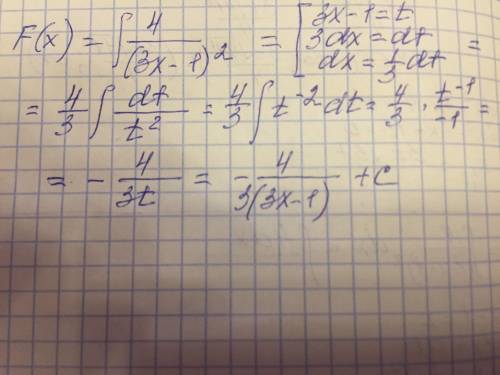 F(x) = ∫ 4/(3x-1)² = [ 3x-1=t
3dx=dt
dx=1/3 dt =
= 4/3 ∫ dt/t² = 4/3 ∫ t⁻² dt = 4/3 · t⁻¹/-1 =
= - 4/3t = - 4/3(3x-1) + c